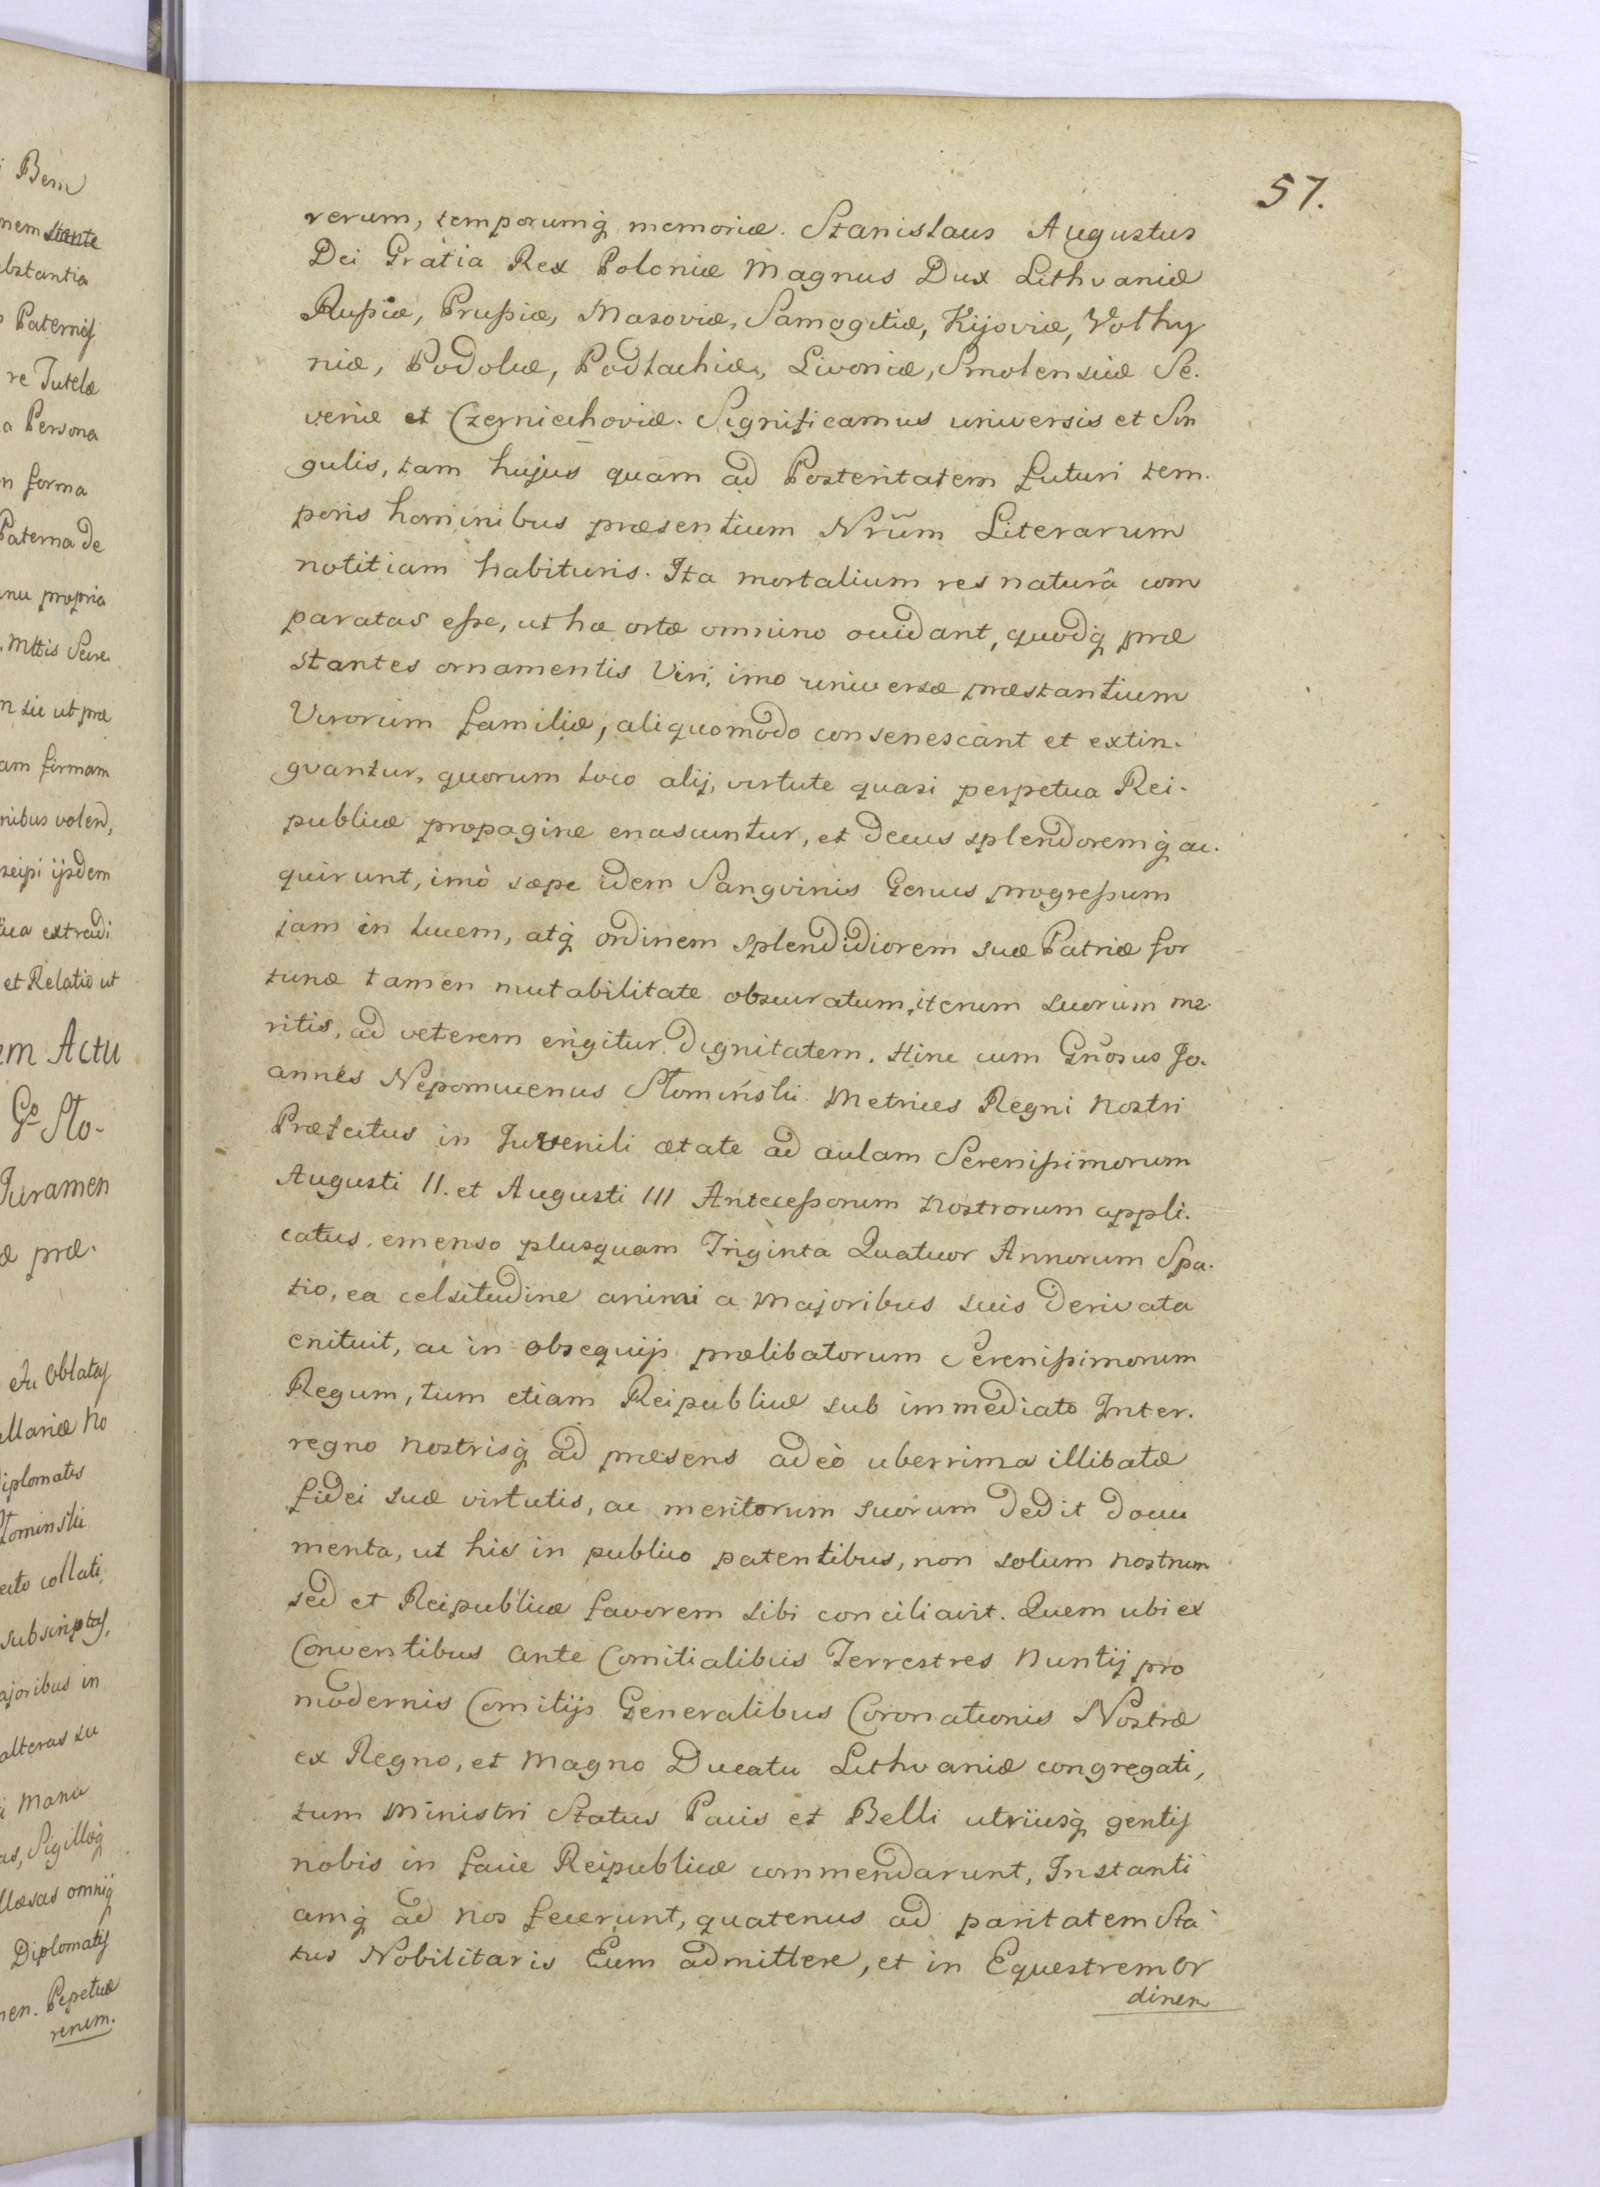 57.
rerum, temporumq́ memoriæ. Stanislaus Augustus
Dei Gratia Rex Poloniæ Magnus Dux Lithvaniæ
Rußiæ, Prußiæ, Masoviæ, Samogitiæ, Kijoviæ, Volhy
niæ, Podoliæ, Podlachiæ, Livoniæ, Smolensciæ Se.
veriæ et Czerniechoviæ. Significamus universis et Sin
gulis, tam hujus quam ad Posteritatem futuri tem.
poris hominibus præsentium Nrũm Literarum
notitiam habituris. Ita mortalium res naturâ com
paratas eße, ut hæ ortæ omnino occidant, quodq́ præ
stantes ornamentis Viri, imo universæ præstantium
Virorum familiæ, aliquomodo consenescant et extin.
gvantur, quorum loco alij, virtute quasi perpetua Rei.
publicæ propagine enascuntur, et decus splendoremq́ ac.
quirunt, imò sæpe idem Sangvinis Genus progreßum
jam in lucem, atq́ ordinem splendidiorem suæ Patriæ for
tunæ tamen mutabilitate obscuratum, iterum suorum me.
ritis, ad veterem erigitur dignitatem. Hinc cum Gñosus Jo.
annes Nepomucenus Słomiński Metrices Regni Nostri
Præfectus in Juvenili ætate ad aulam Serenißimorum
Augusti II. et Augusti III Anteceßorum Nostrorum appli.
catus, emenso plusquam Triginta Quatuor Annorum Spa.
tio, ea celsitudine animi a Majoribus suis derivata
enituit, ac in obsequijs prælibatorum Serenißimorum
Regum, tum etiam Reipublicæ sub immediato Inter.
regno Nostrisq́ ad præsens adeò uberrima illibatæ
fidei suæ virtutis, ac meritorum suorum dedit docu
menta, ut his in publico patentibus, non solum Nostrum
sed et Reipublicæ favorem sibi conciliavit. Quem ubi ex
Conventibus ante Comitialibus Terrestres Nuntij pro
modernis Comitijs Generalibus Coronationis Nostræ
ex Regno, et Magno Ducatu Lithvaniæ congregati,
tum Ministri Status Pacis et Belli utriusq́ gentis
nobis in facie Reipublicæ commendarunt, Instanti
amq́ ad Nos fecerunt, quatenus ad paritatem Sta
tus Nobilitaris Eum admittere, et in Equestrem Or
dinem